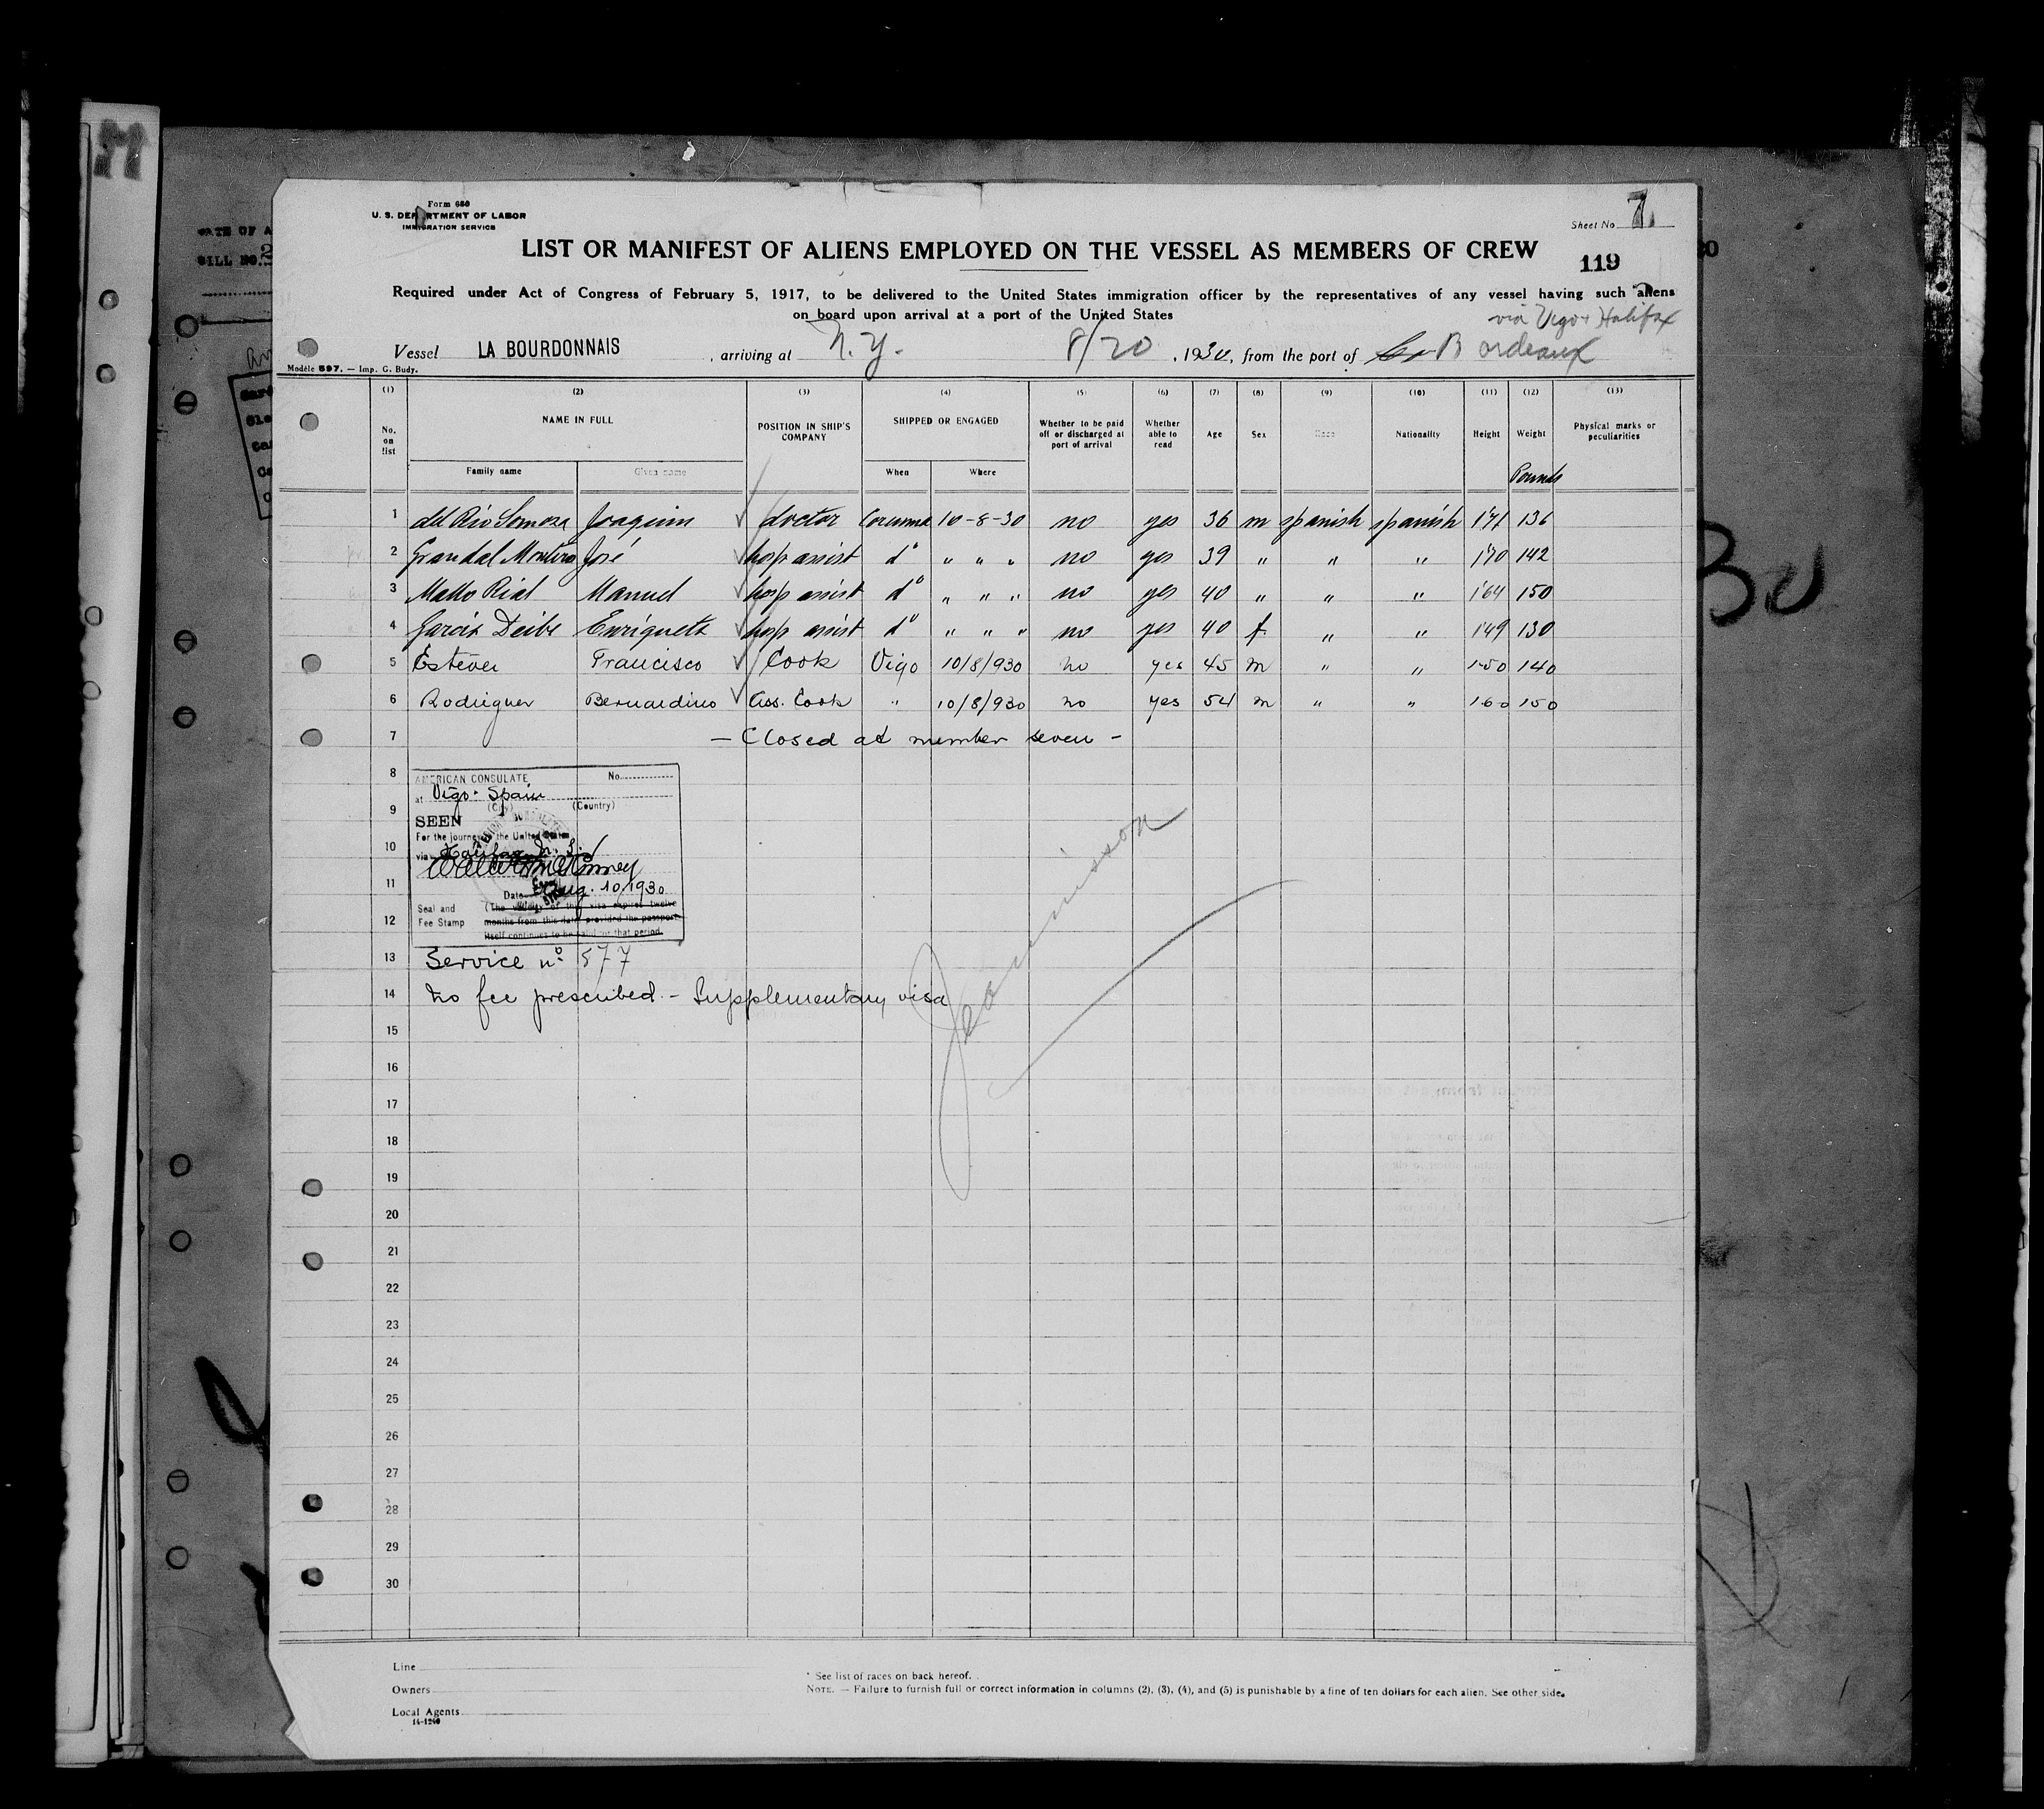 Form 680
U. S. DEPARTMENT OF LABOR
IMMIGRATION SERVICE
Sheet No. 7.
LIST OR MANIFEST OF ALIENS EMPLOYED ON THE VESSEL AS MEMBERS OF CREW
119
Required under Act of Congress of February 5, 1917, to be delivered to the United States immigration officer by the representatives of any vessel having such aliens
on board upon arrival at a port of the United States
via Vigo + Halifax
Vessel LA BOURDONNAIS, arriving at N.Y. 8/20, 1930, from the port of Bordeaux
Modèle 597. — Imp. G. Budy.
(1) (2) (3) (4) (5) (6) (7) (8) (9) (10) (11) (12) (13)
No. on list NAME IN FULL POSITION IN SHIP'S COMPANY SHIPPED OR ENGAGED Whether to be paid off or discharged at port of arrival Whether able to read Age Sex Race Nationality Height Weight Physical marks or peculiarities
Family name Given name When Where Pounds
1 del Rio Somoza Joaquim doctor Corunna 10-8-30 no yes 36 m spanish spanish 1'71 136
2 Grandal Montero José hosp assist d° " " " no yes 39 " " " 1'70 142
3 Mallo Rial Manuel hosp assist d° " " " no yes 40 " " " 1'64 150
4 Garcia Deibe Enriqueta hosp assist d° " " " no yes 40 f. " " 1'49 130
5 Estévez Francisco Cook Vigo 10/8/930 no yes 45 m " " 1.50 140
6 Rodriguez Bernardino Ass. Cook " 10/8/930 no yes 54 m " " 1.60 150
7 — Closed at member seven -
8 AMERICAN CONSULATE No.
at Vigo. Spain
9 (City) (Country)
SEEN
For the journey to the United States
10 via Halifax N. S.
11 Date Aug. 10, 1930
Seal and (The validity of this visa expires twelve
12 Fee Stamp months from this date provided the passport
itself continues to be valid for that period.
13 Service nº 877
14 No fee prescribed. - Supplementary visa
15
16
17
18
19
20
21
22
23
24
25
26
27
28
29
30
Line
Owners
Local Agents
14-1240
* See list of races on back hereof.
NOTE. — Failure to furnish full or correct information in columns (2), (3), (4), and (5) is punishable by a fine of ten dollars for each alien. See other side.